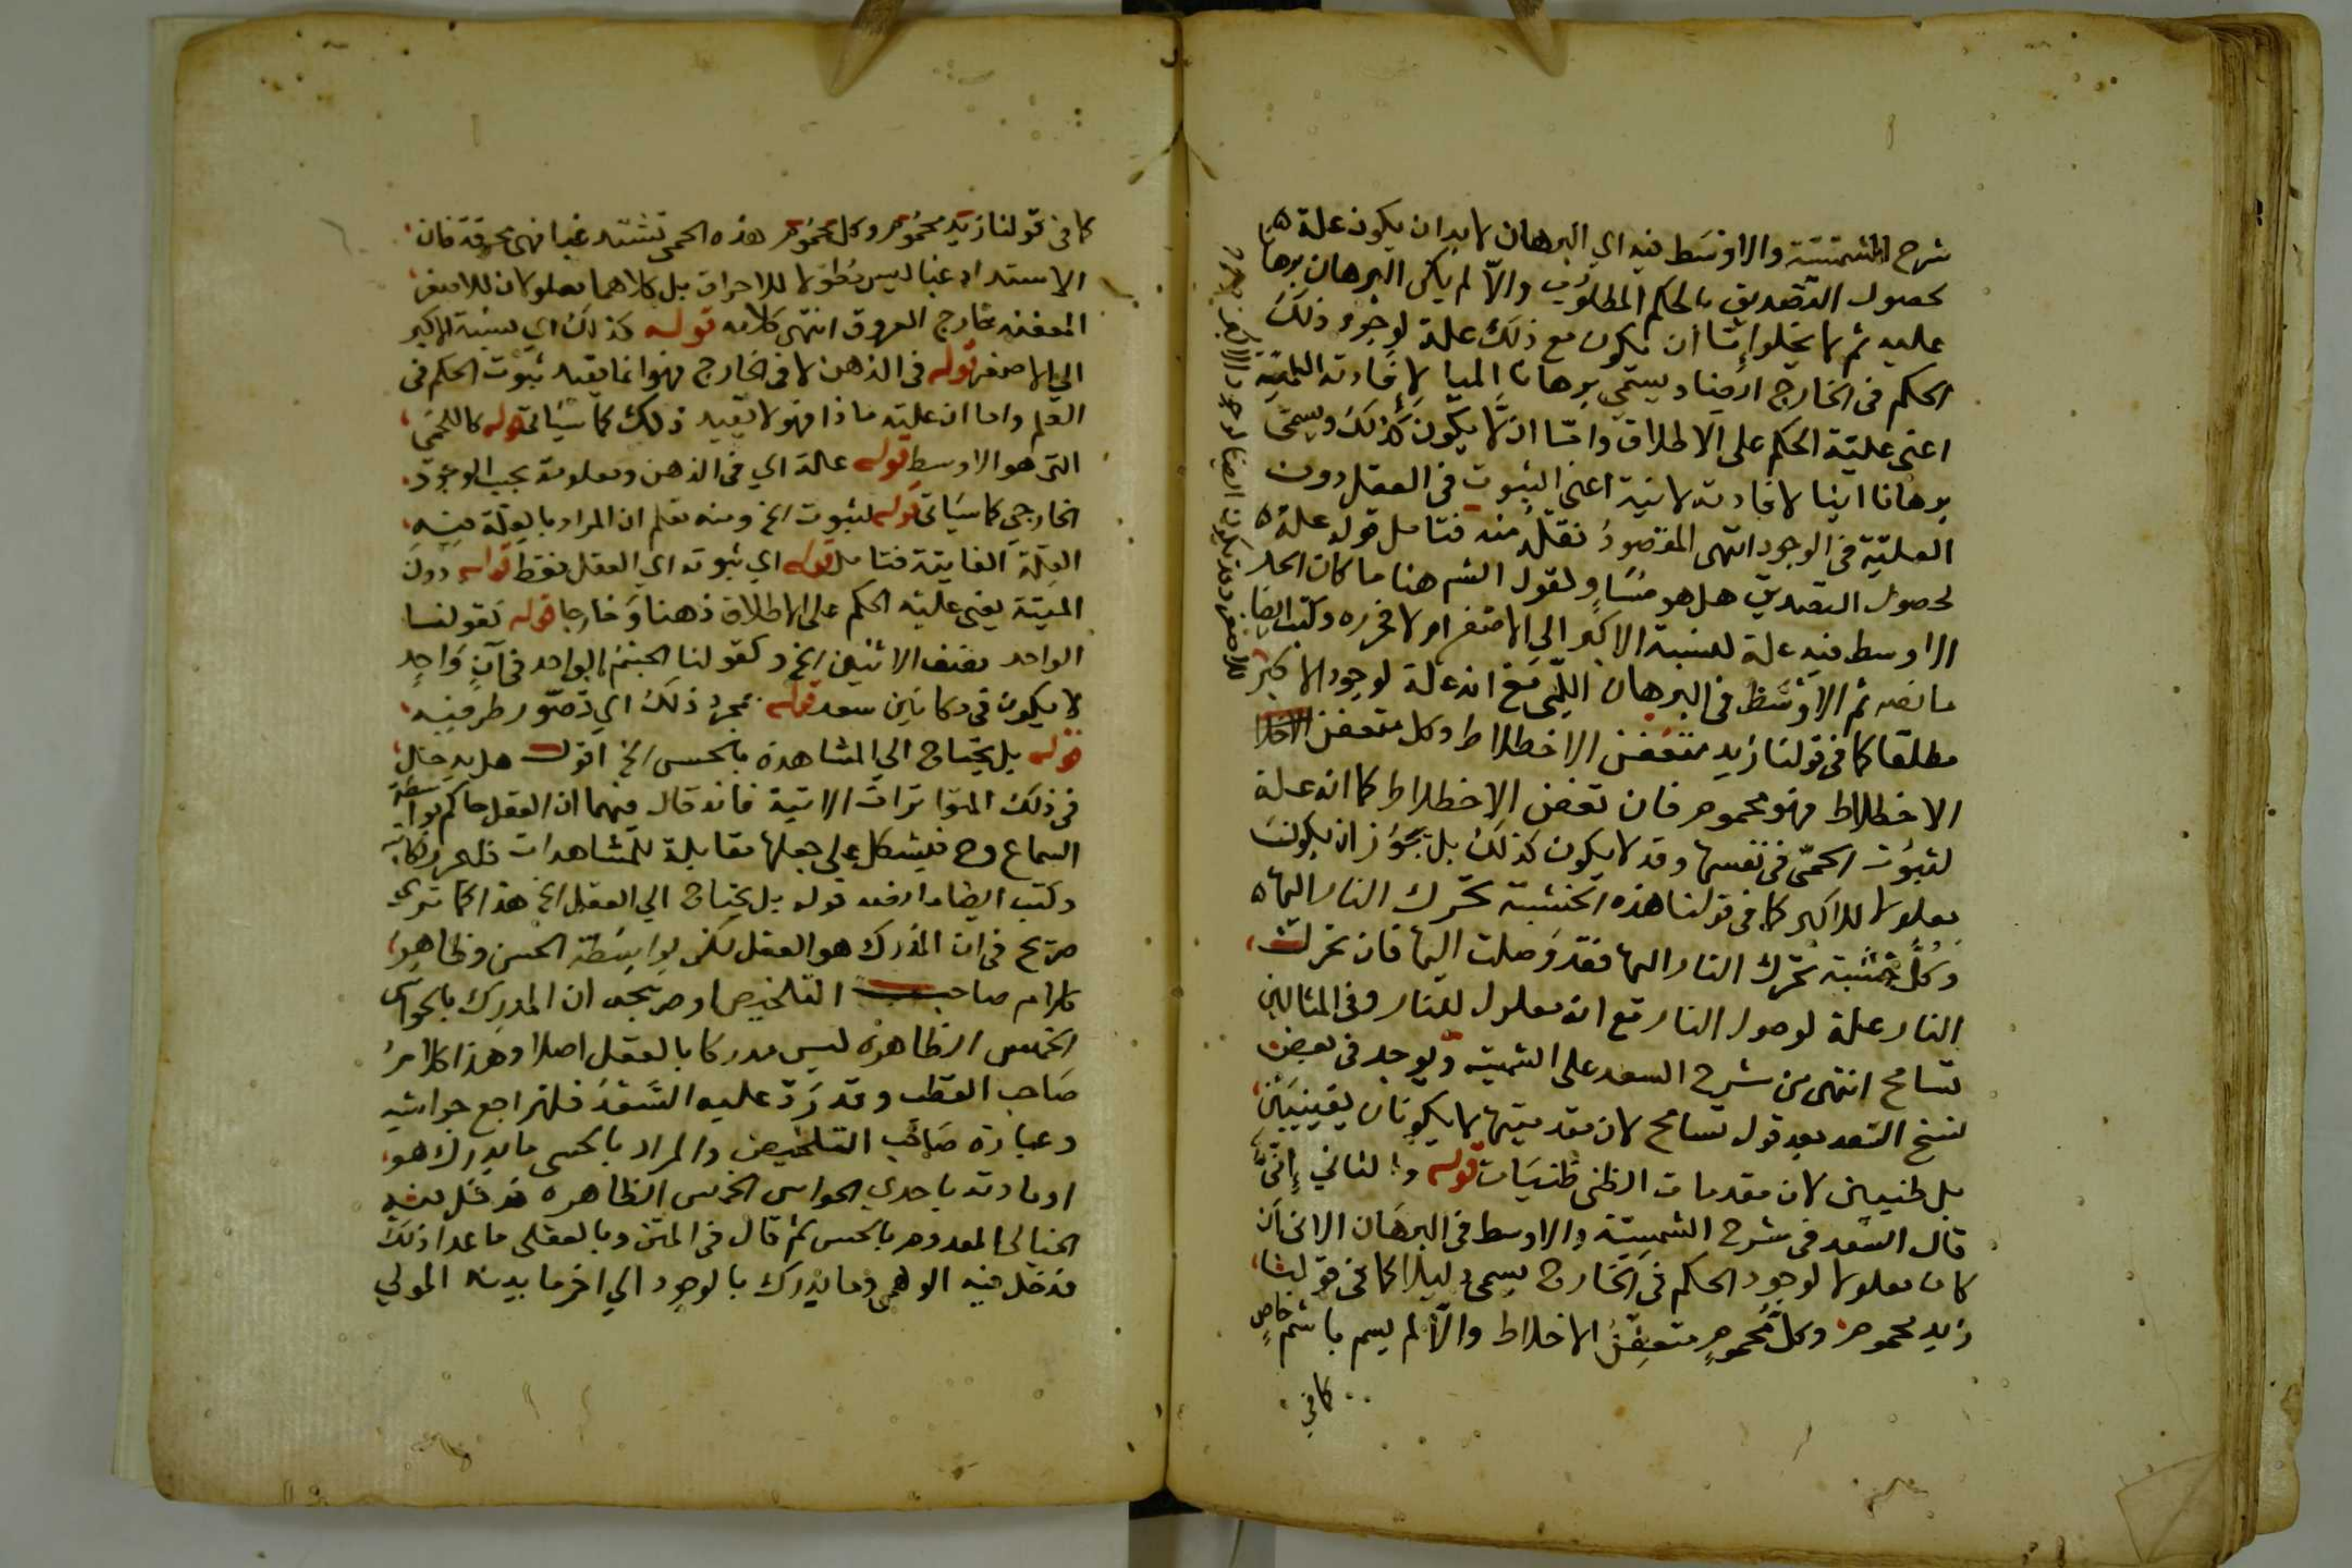 شرح الشمسية والاوسط فيه اي البرهان لابد ان يكون علة
لحصول التصديق بالحكم المطلوب والا لم يكن البرهان برهانا
عليه ثم لا يخلوا اما ان يكون مع ذلك علة لوجود ذلك
الحكم في الخارج ايضا ويسمى برهانا لميا لافادته اللمية
اعني علية الحكم على الاطلاق واما ان لا يكون كذلك ويسمى
برهانا انيا لافادته لانية اعني الثبوت في العقل دون
العلية في الوجود انتهى المقصود نقله منه فتامل قوله علة
لحصول التصديق هل هو مساو لقول الشم هنا ما كان الحد
الاوسط فيه علة لنسبة الاكبر الى الاصغر او لا فحرره وكتب ايضا
ما نصه ثم الاوسط في البرهان اللمي مع انه علة لوجود الاكبر
مطلقا كما في قولنا زيد متعفن الاخطلاط وكل متعفن
الاخطلاط فهو محموم فان تعفن الاخطلاط كما انه علة
لثبوت الحمى في نفسها وقد لا يكون كذلك بل يجوز ان يكون
معلولا للاكبر كما في قولنا هذه الخشبة تحرك النار اليها
وكل خشبة تحرك النار اليها فقد وصلت اليها فان تحرك
النار علة لوصول النار مع انه معلول للنار وفي المثالين
تسامح انتهى من شرح السعد على الشمية ويوجد في بعض
نسخ السعد بعد قول تسامح لان مقدمتيها لا يكونان يقينيين
بل ظنيين لان مقدمات الظني ظنيات قوله والثاني إنيّ
قال السعد في شرح الشمسية والاوسط في البرهان الاني ان
كان معلولا لوجود الحكم في الخارج يسمى دليلا كما في قولنا
زيد محموم وكل محموم متعفن الاخلاط والا لم يسم باسم خاص
كما في
كما في قولنا زيد محموم وكل محموم هذه الحمى تشتد غبا فهي محرقة فان
الاستداد غبا ليس معلولا للاحراق بل كلاهما معلولان للاصفر
المعفنة خارج العروق انتهى كلامه قوله كذلك اي لنسبة الاكبر
الى الاصغر قوله في الذهن لا في الخارج فهو انما يفيد ثبوت الحكم في
العلم واما ان علته ماذا فهو لا يفيد ذلك كما سياتي قوله كالحمى
التي هو الاوسط قوله علة اي في الذهن ومعلومة بحسب الوجود
الخارجي كما سياتي قوله لثبوت الخ ومنه تعلم ان المراد بالعلة فيه
العلة الغايية فتامل قوله اي ثبوته اي العقل فقط قوله دون
الميتة يعني علية الحكم على الاطلاق ذهنا وخارجا قوله كقولنا
الواحد نصف الاثنين الخ وكقولنا الجسم الواحد في آن واحد
لا يكون في مكانين سعد قوله بمجرد ذلك اي تصور طرفيه
قوله بل يحتاج الى المشاهدة بالحس الخ اقول هل يدخل
في ذلك المتواترات الاتية فانه قال فيهما ان العقل حاكم بواسطة
السماع وح فيشكل على جعلها مقابلة للمشاهدات فليحرر وكانه
وكتب ايضا ما رفعه قوله بل يحتاج الي العقل الخ هذا كما ترى
صريح في ان المدرك هو العقل لكن بواسطة الحس وظاهر
كلام صاحب التلخيص او صريحه ان المدرك بالحواس
الخمس الظاهرة ليس مدركا بالعقل اصلا وهذا كلام
صاحب القطب وقد رد عليه السعد فلتراجع حواشيه
وعبارة صاحب التلخيص والمراد بالحسى ما يدرك هو
او مادته باحدي الحواس الخمس الظاهره فدخل فيه
الخيالي المعدوم بالحس ثم قال في المتن وبالعقلي ما عدا ذلك
فدخل فيه الوهمي وما يدرك بالوجود الي اخر ما بينه المولي